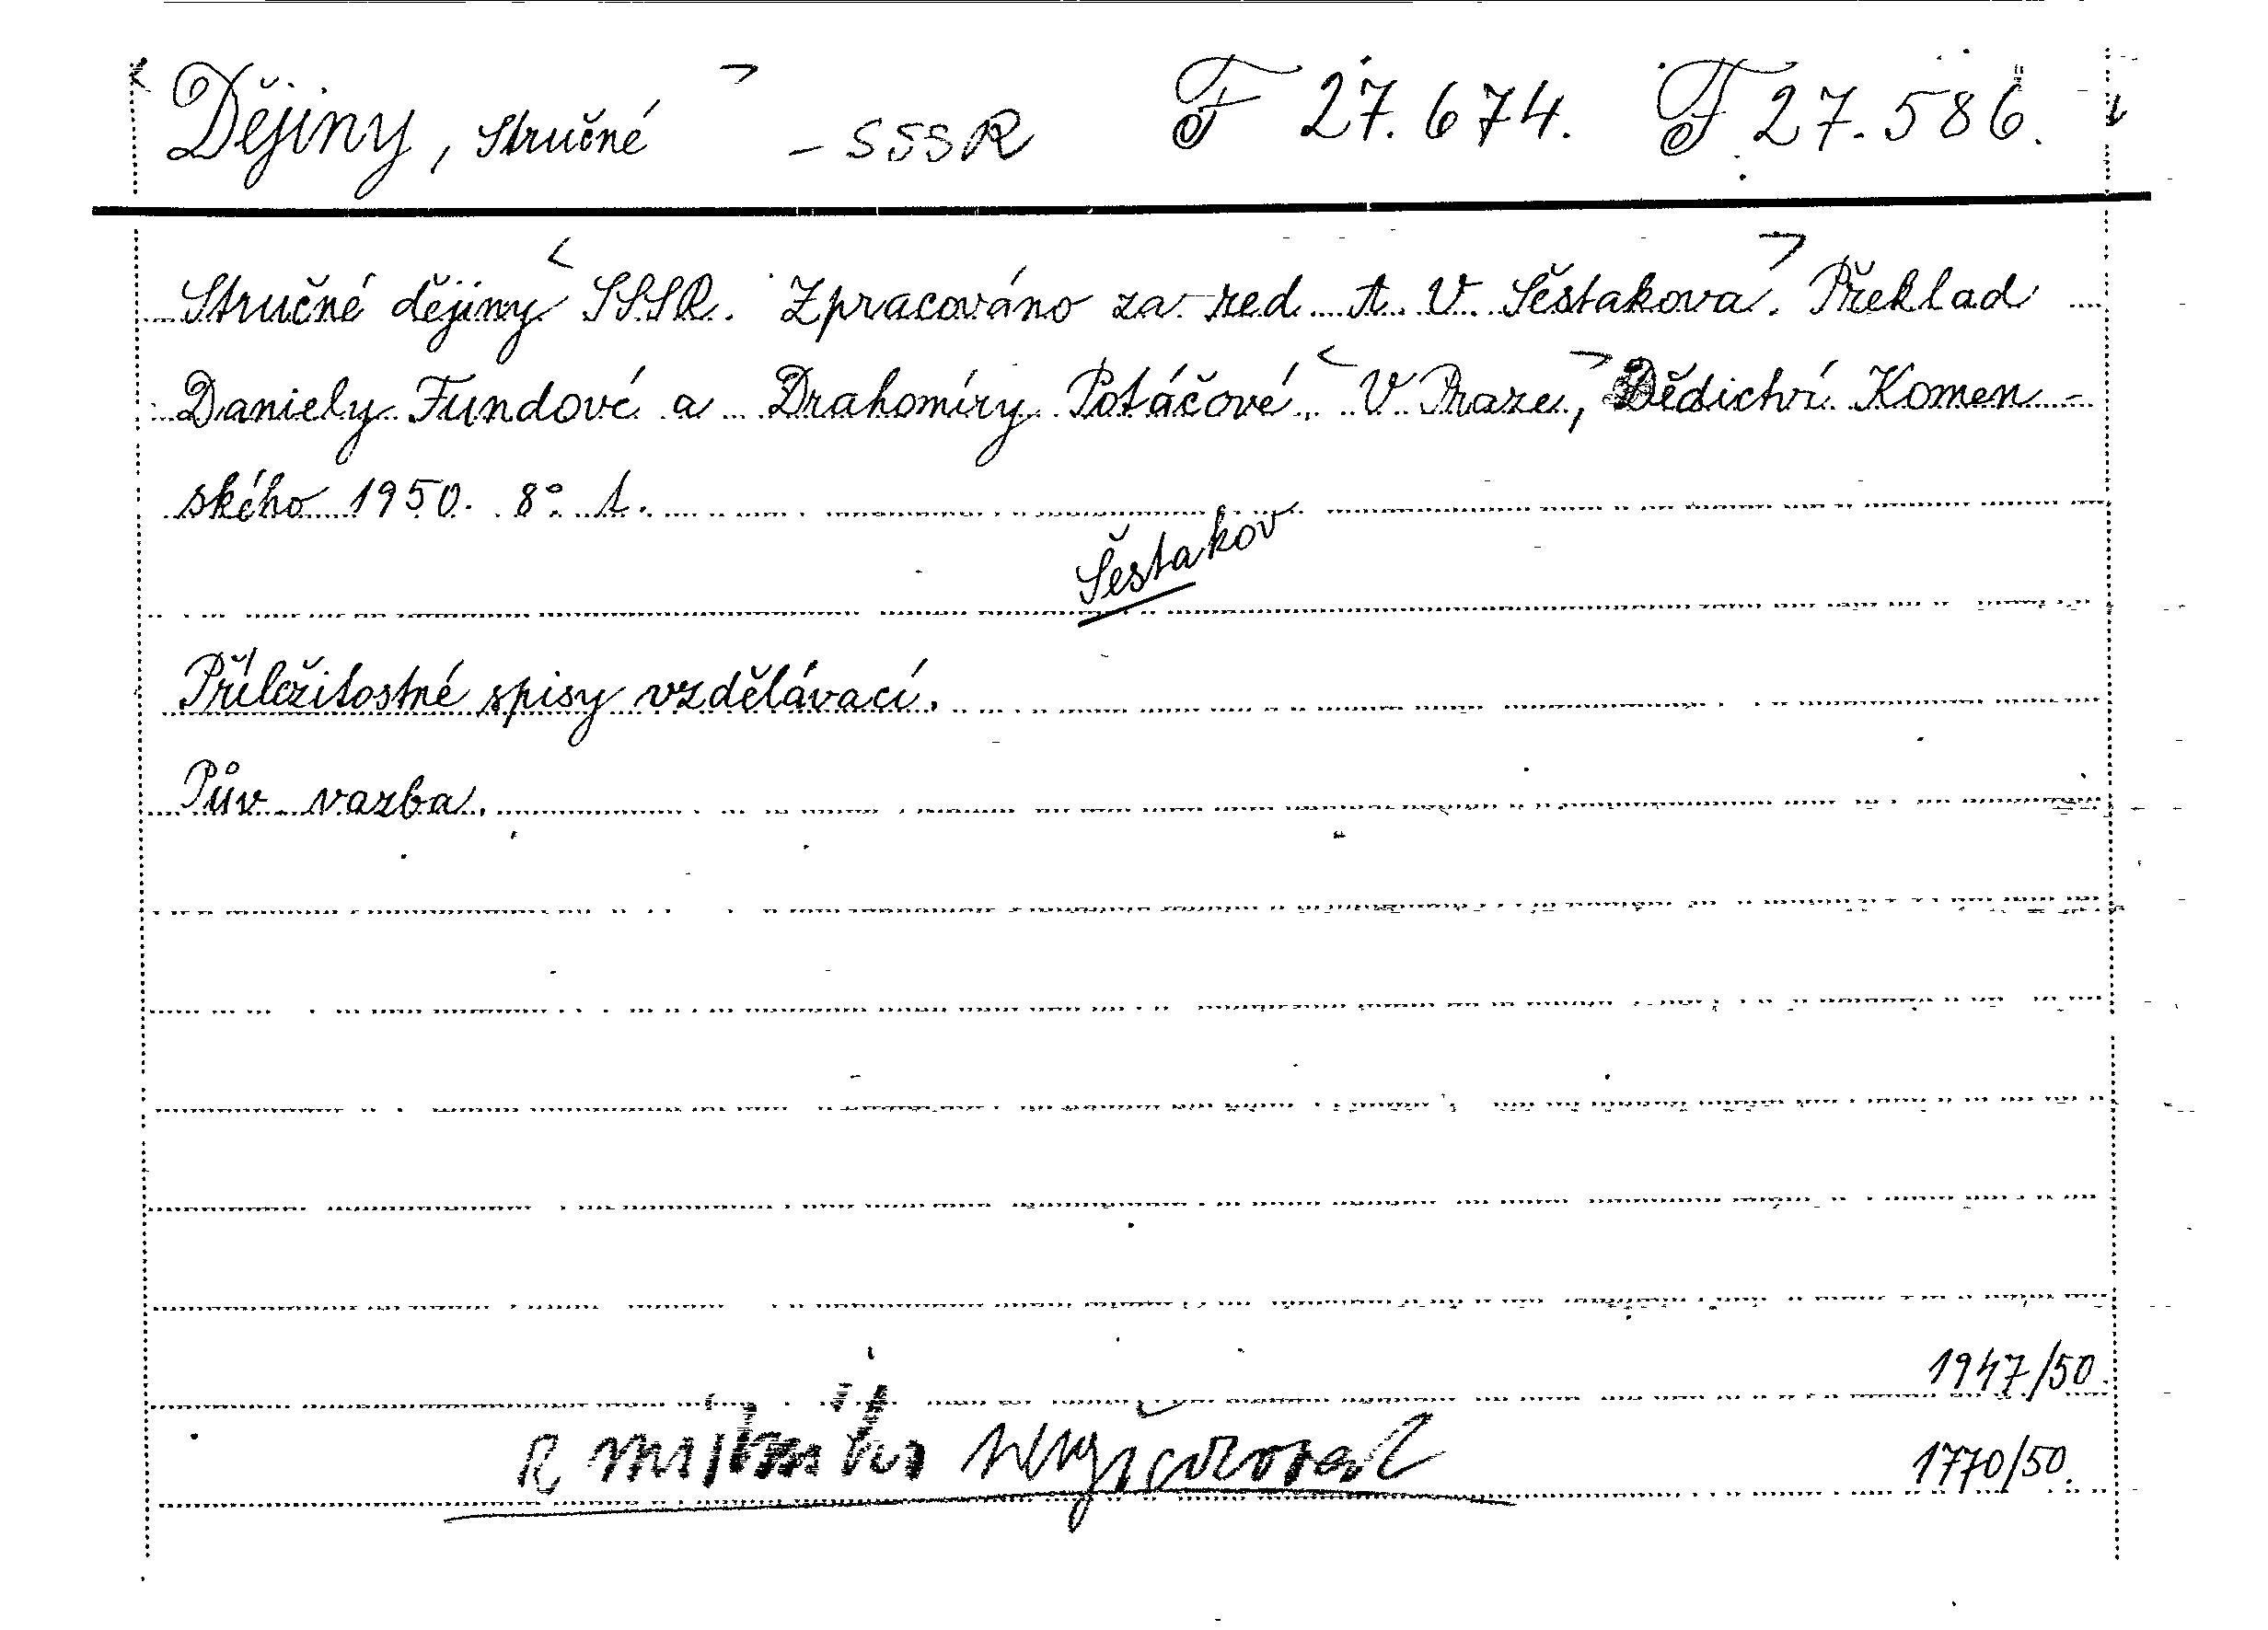 Dějiny, stručné - SSSR F 27.674. F 27.586.
Stručné dějiny SSSR. Zpracováno za red. A. V. Šěstakova. Překlad
Daniely Fundové a Drahomíry Potáčové. V Praze, Dědictví Komen-
ského 1950. 8° 1.
Šestakov
Příležitostné spisy vzdělávací.
Pův. vazba.
1947/50.
1770/50.